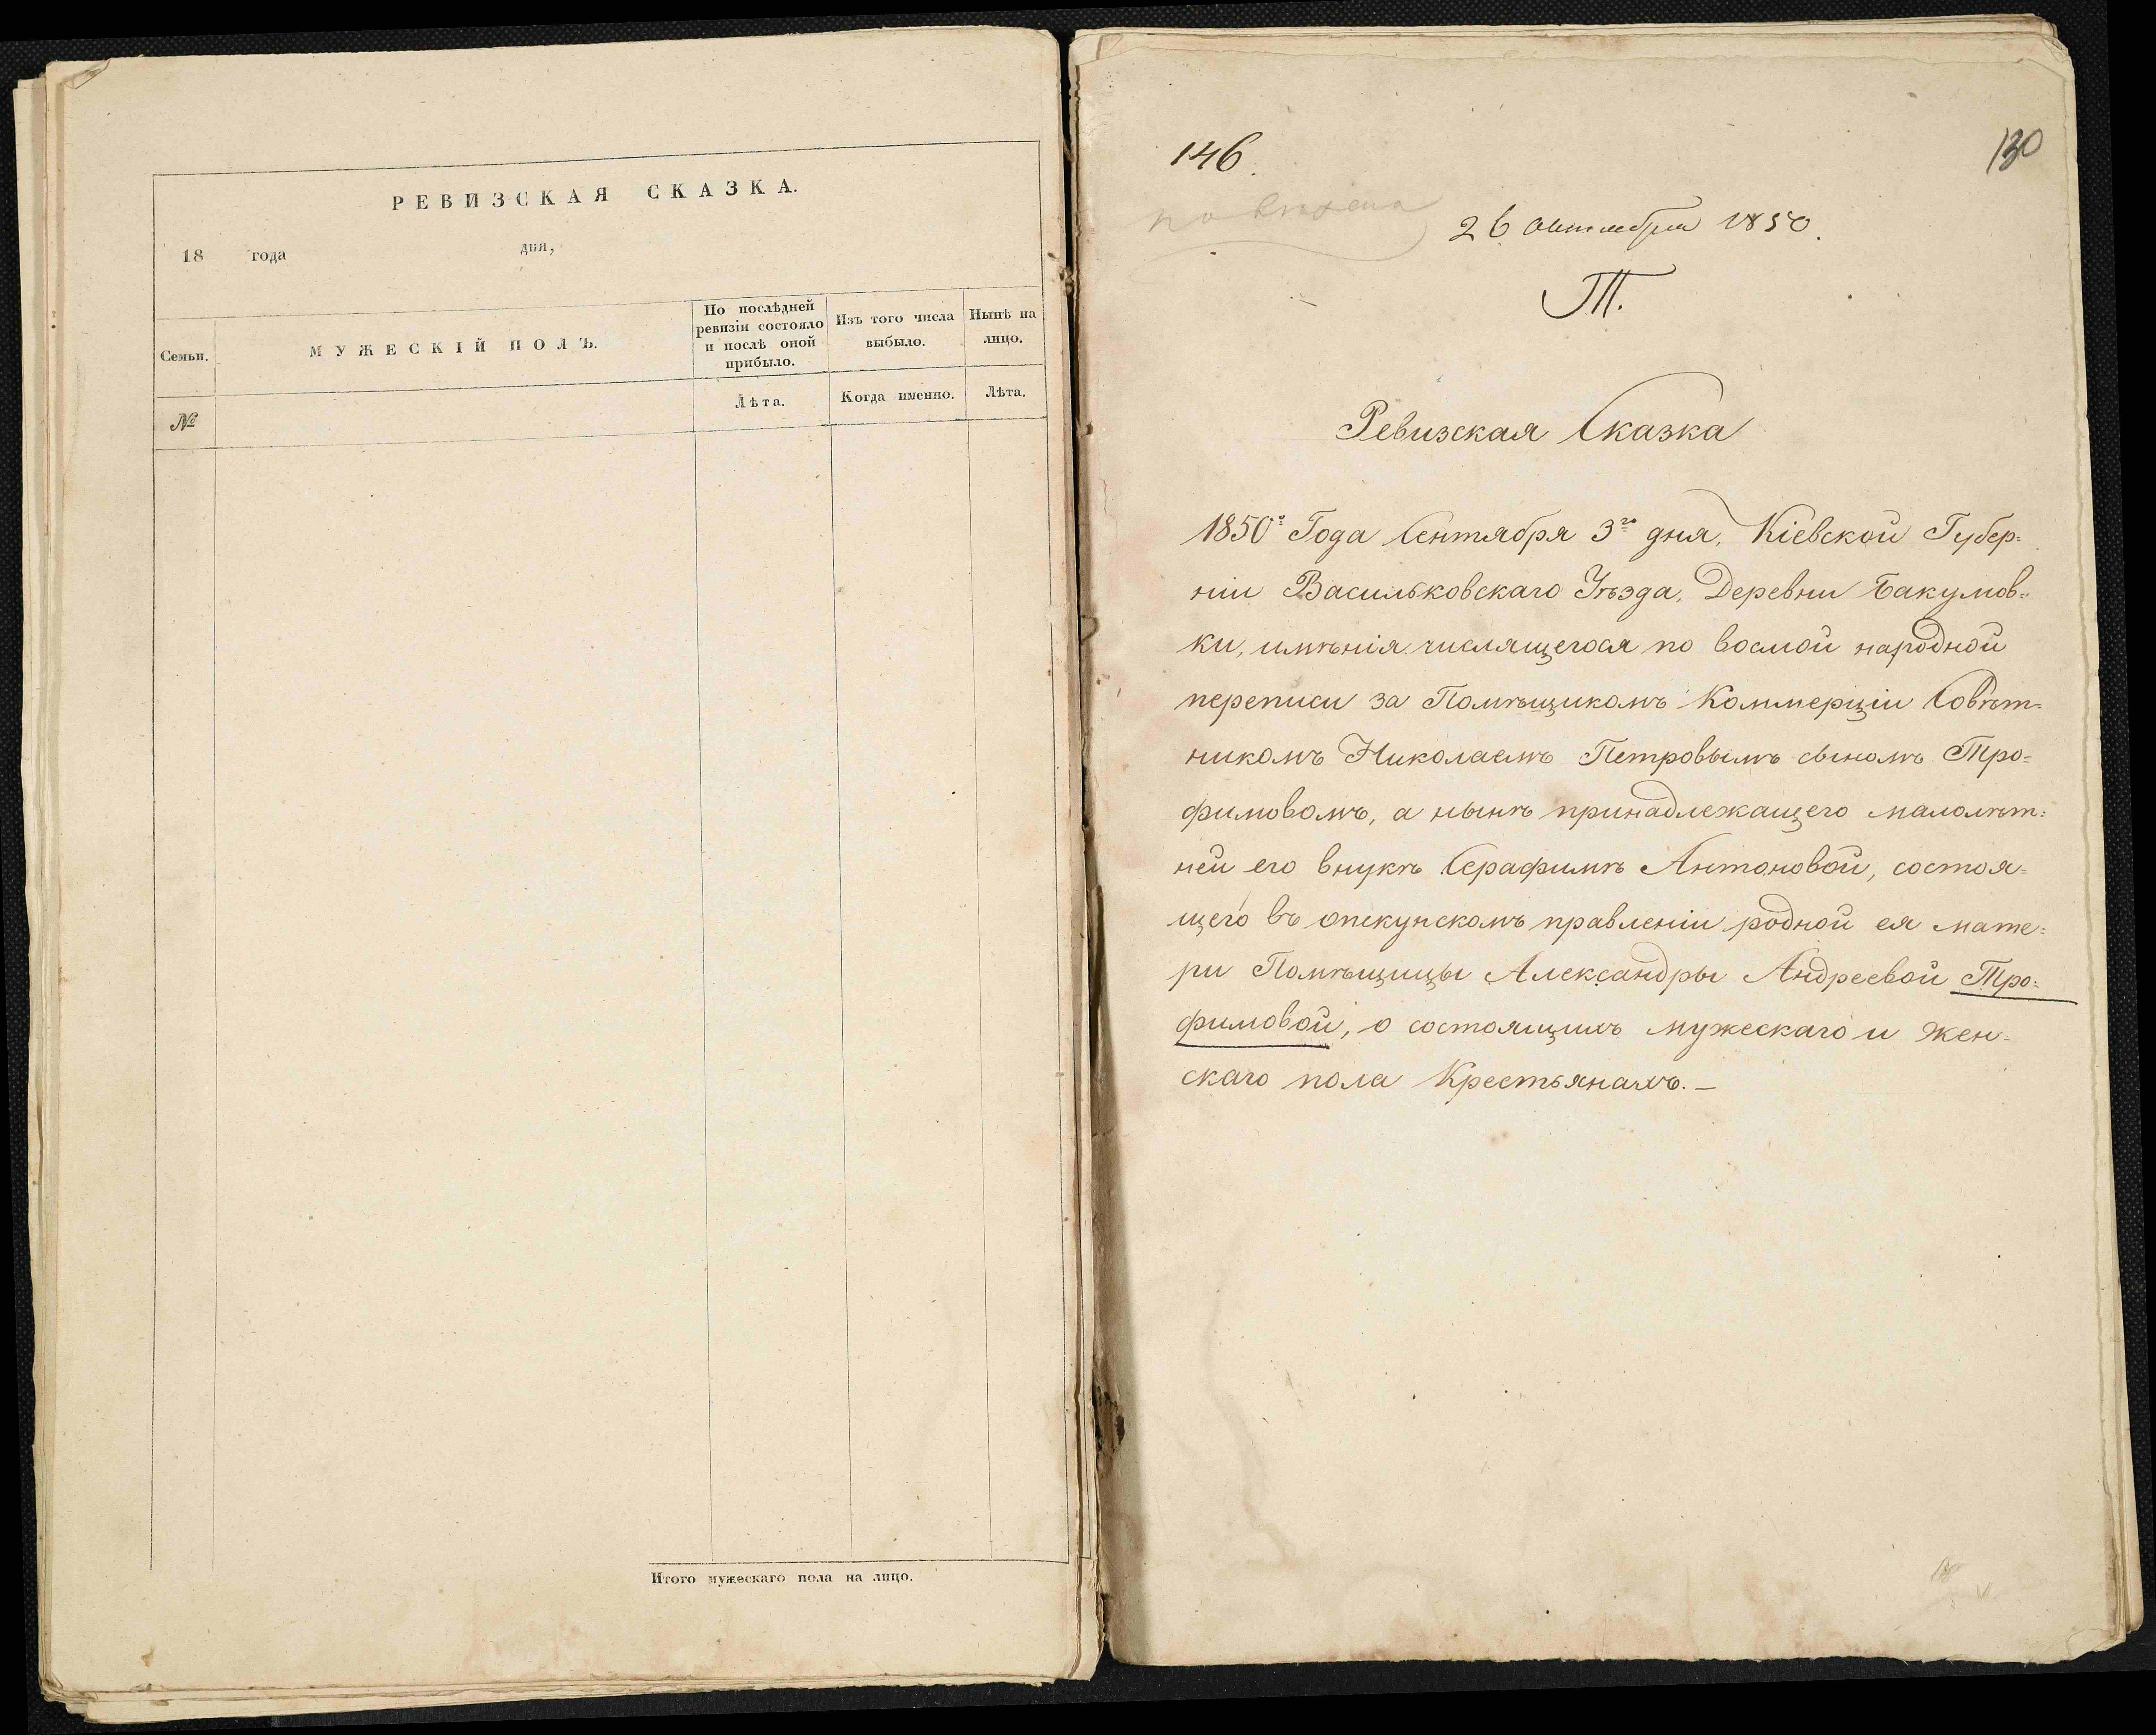 РЕВИЗСКАЯ СКАЗКА.
18 года дня,
Семьи.
МУЖЕСКІЙ ПОЛЪ.
По послѣдней
ревизіи состояло
и послѣ оной
прибыло.
Изъ того числа
выбыло.
Нынѣ на
лицо.
№
Лѣта.
Когда именно.
Лѣта.
Итого мужескаго пола на лицо.
146.
130
26 октября 1850.
Т.
Ревизская Сказка
1850го Года Сентября 3го дня, Кіевской Губер=
ніи Васильковскаго Уѣзда, Деревни Бакумов=
ки, имѣнія числящегося по восмой народной
переписи за Помѣщикомъ Коммерціи Совѣт=
никомъ Николаемъ Петровымъ сыномъ Тро=
фимовомъ, а нынѣ принадлежащего малолѣт=
ней его внукѣ Серафимѣ Антоновой, состоя=
щего въ опекунскомъ правленіи родной ея мате=
ри Помѣщицы Александры Андреевой Тро=
фимовой, о состоящихъ мужескаго и жен=
скаго пола Крестьянахъ.—